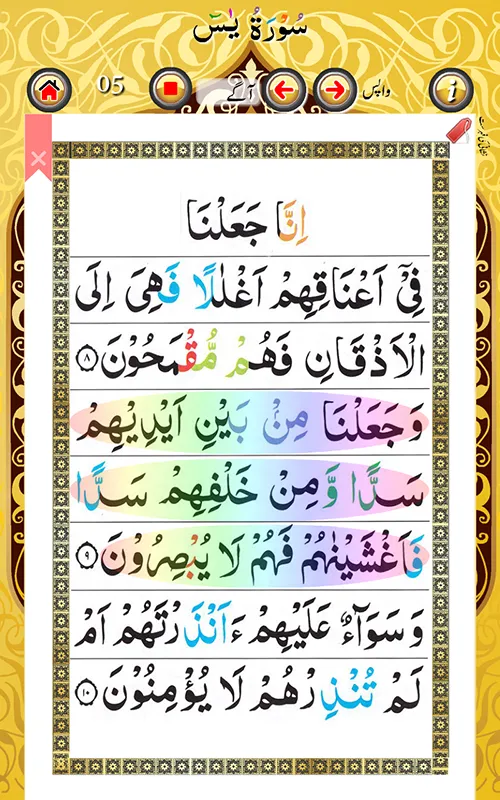 سُوْرَةُ يٰسٓ
05
آگے
واپس
i
اِنَّا جَعَلْنَا
فِيْۤ اَعْنَاقِهِمْ اَغْلٰلًا فَهِيَ اِلَى
الْاَذْقَانِ فَهُمْ مُّقْمَحُوْنَ ۸
وَجَعَلْنَا مِنْۢ بَيْنِ اَيْدِيْهِمْ
سَدًّا وَّمِنْ خَلْفِهِمْ سَدًّا
فَاَغْشَيْنٰهُمْ فَهُمْ لَا يُبْصِرُوْنَ ۹
وَسَوَآءٌ عَلَيْهِمْ ءَاَنْذَرْتَهُمْ اَمْ
لَمْ تُنْذِرْهُمْ لَا يُؤْمِنُوْنَ ۱۰